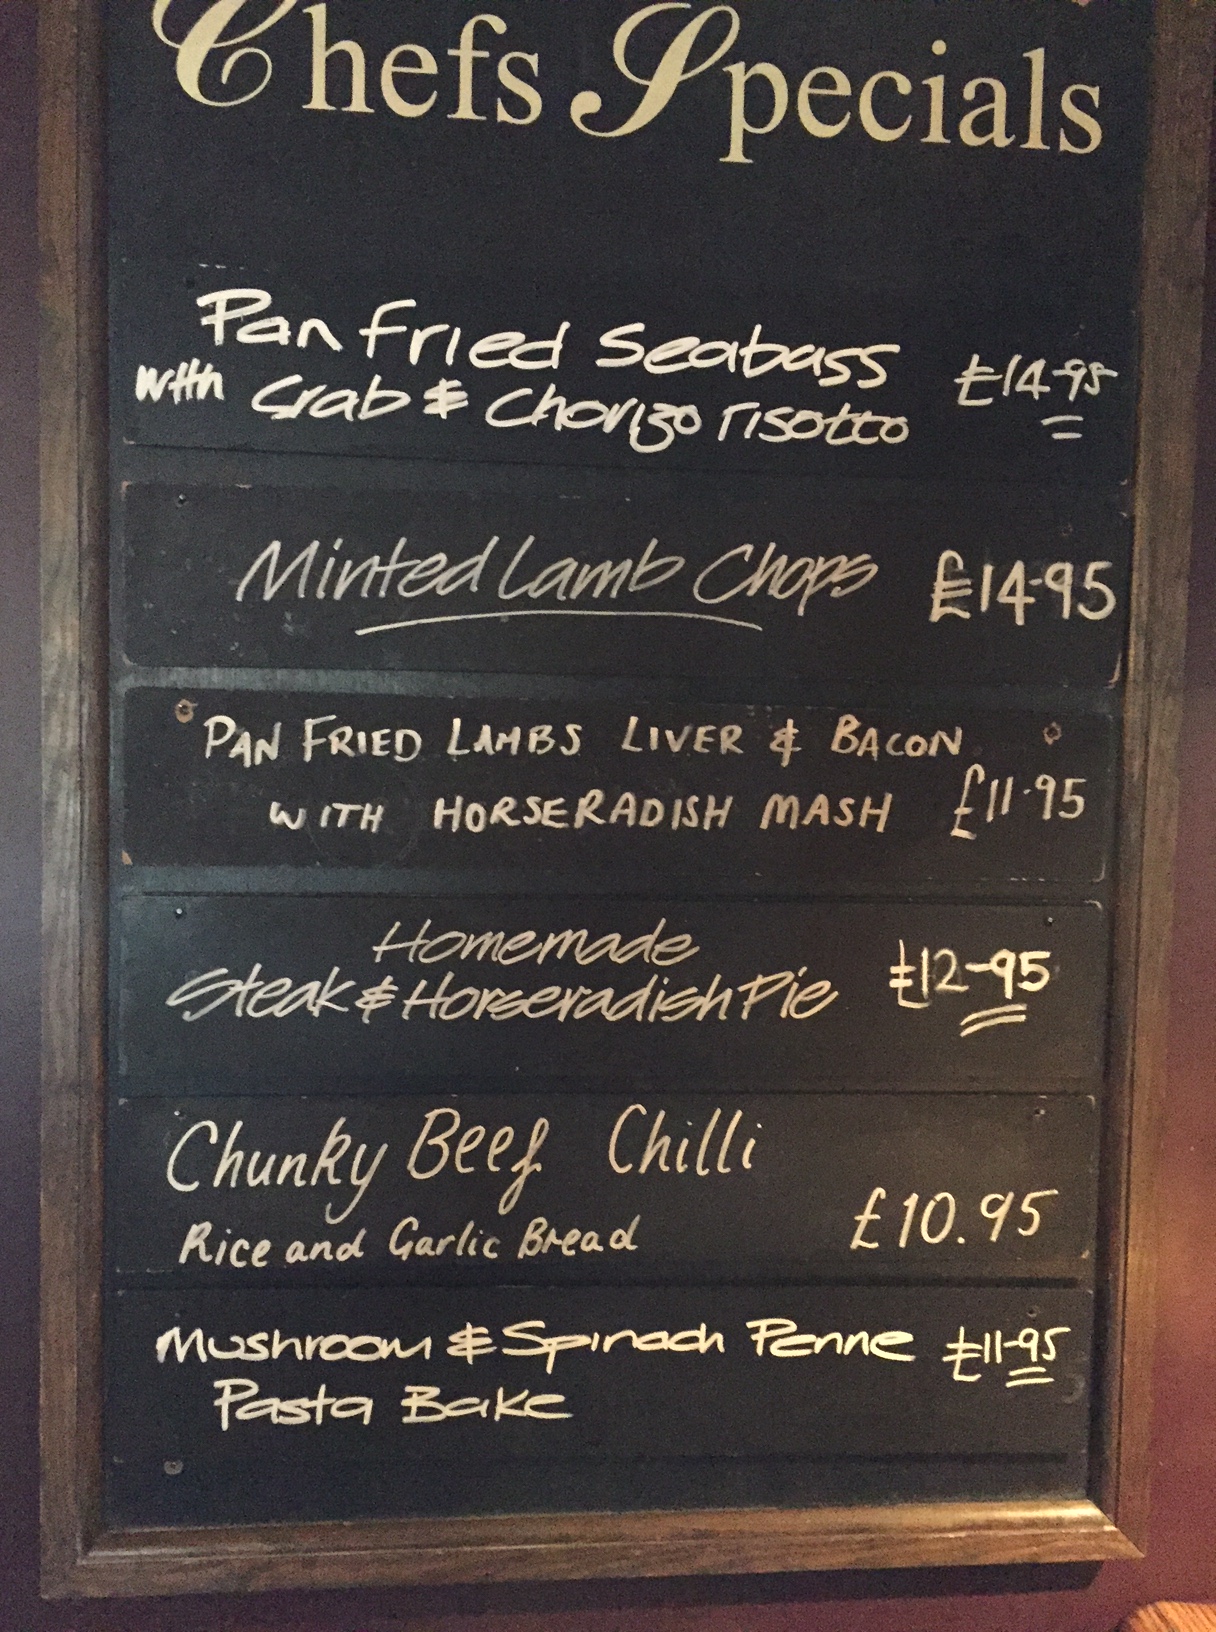 Chefs Specials
Pan Fried Seabass
with Crab & Chorizo risotto £14-95
Minted Lamb Chops £14-95
PAN FRIED LAMBS LIVER & BACON
WITH HORSERADISH MASH £11·95
Homemade
Steak & Horseradish Pie £12-95
Chunky Beef Chilli
Rice and Garlic Bread £10.95
Mushroom & Spinach Penne £11-95
Pasta Bake